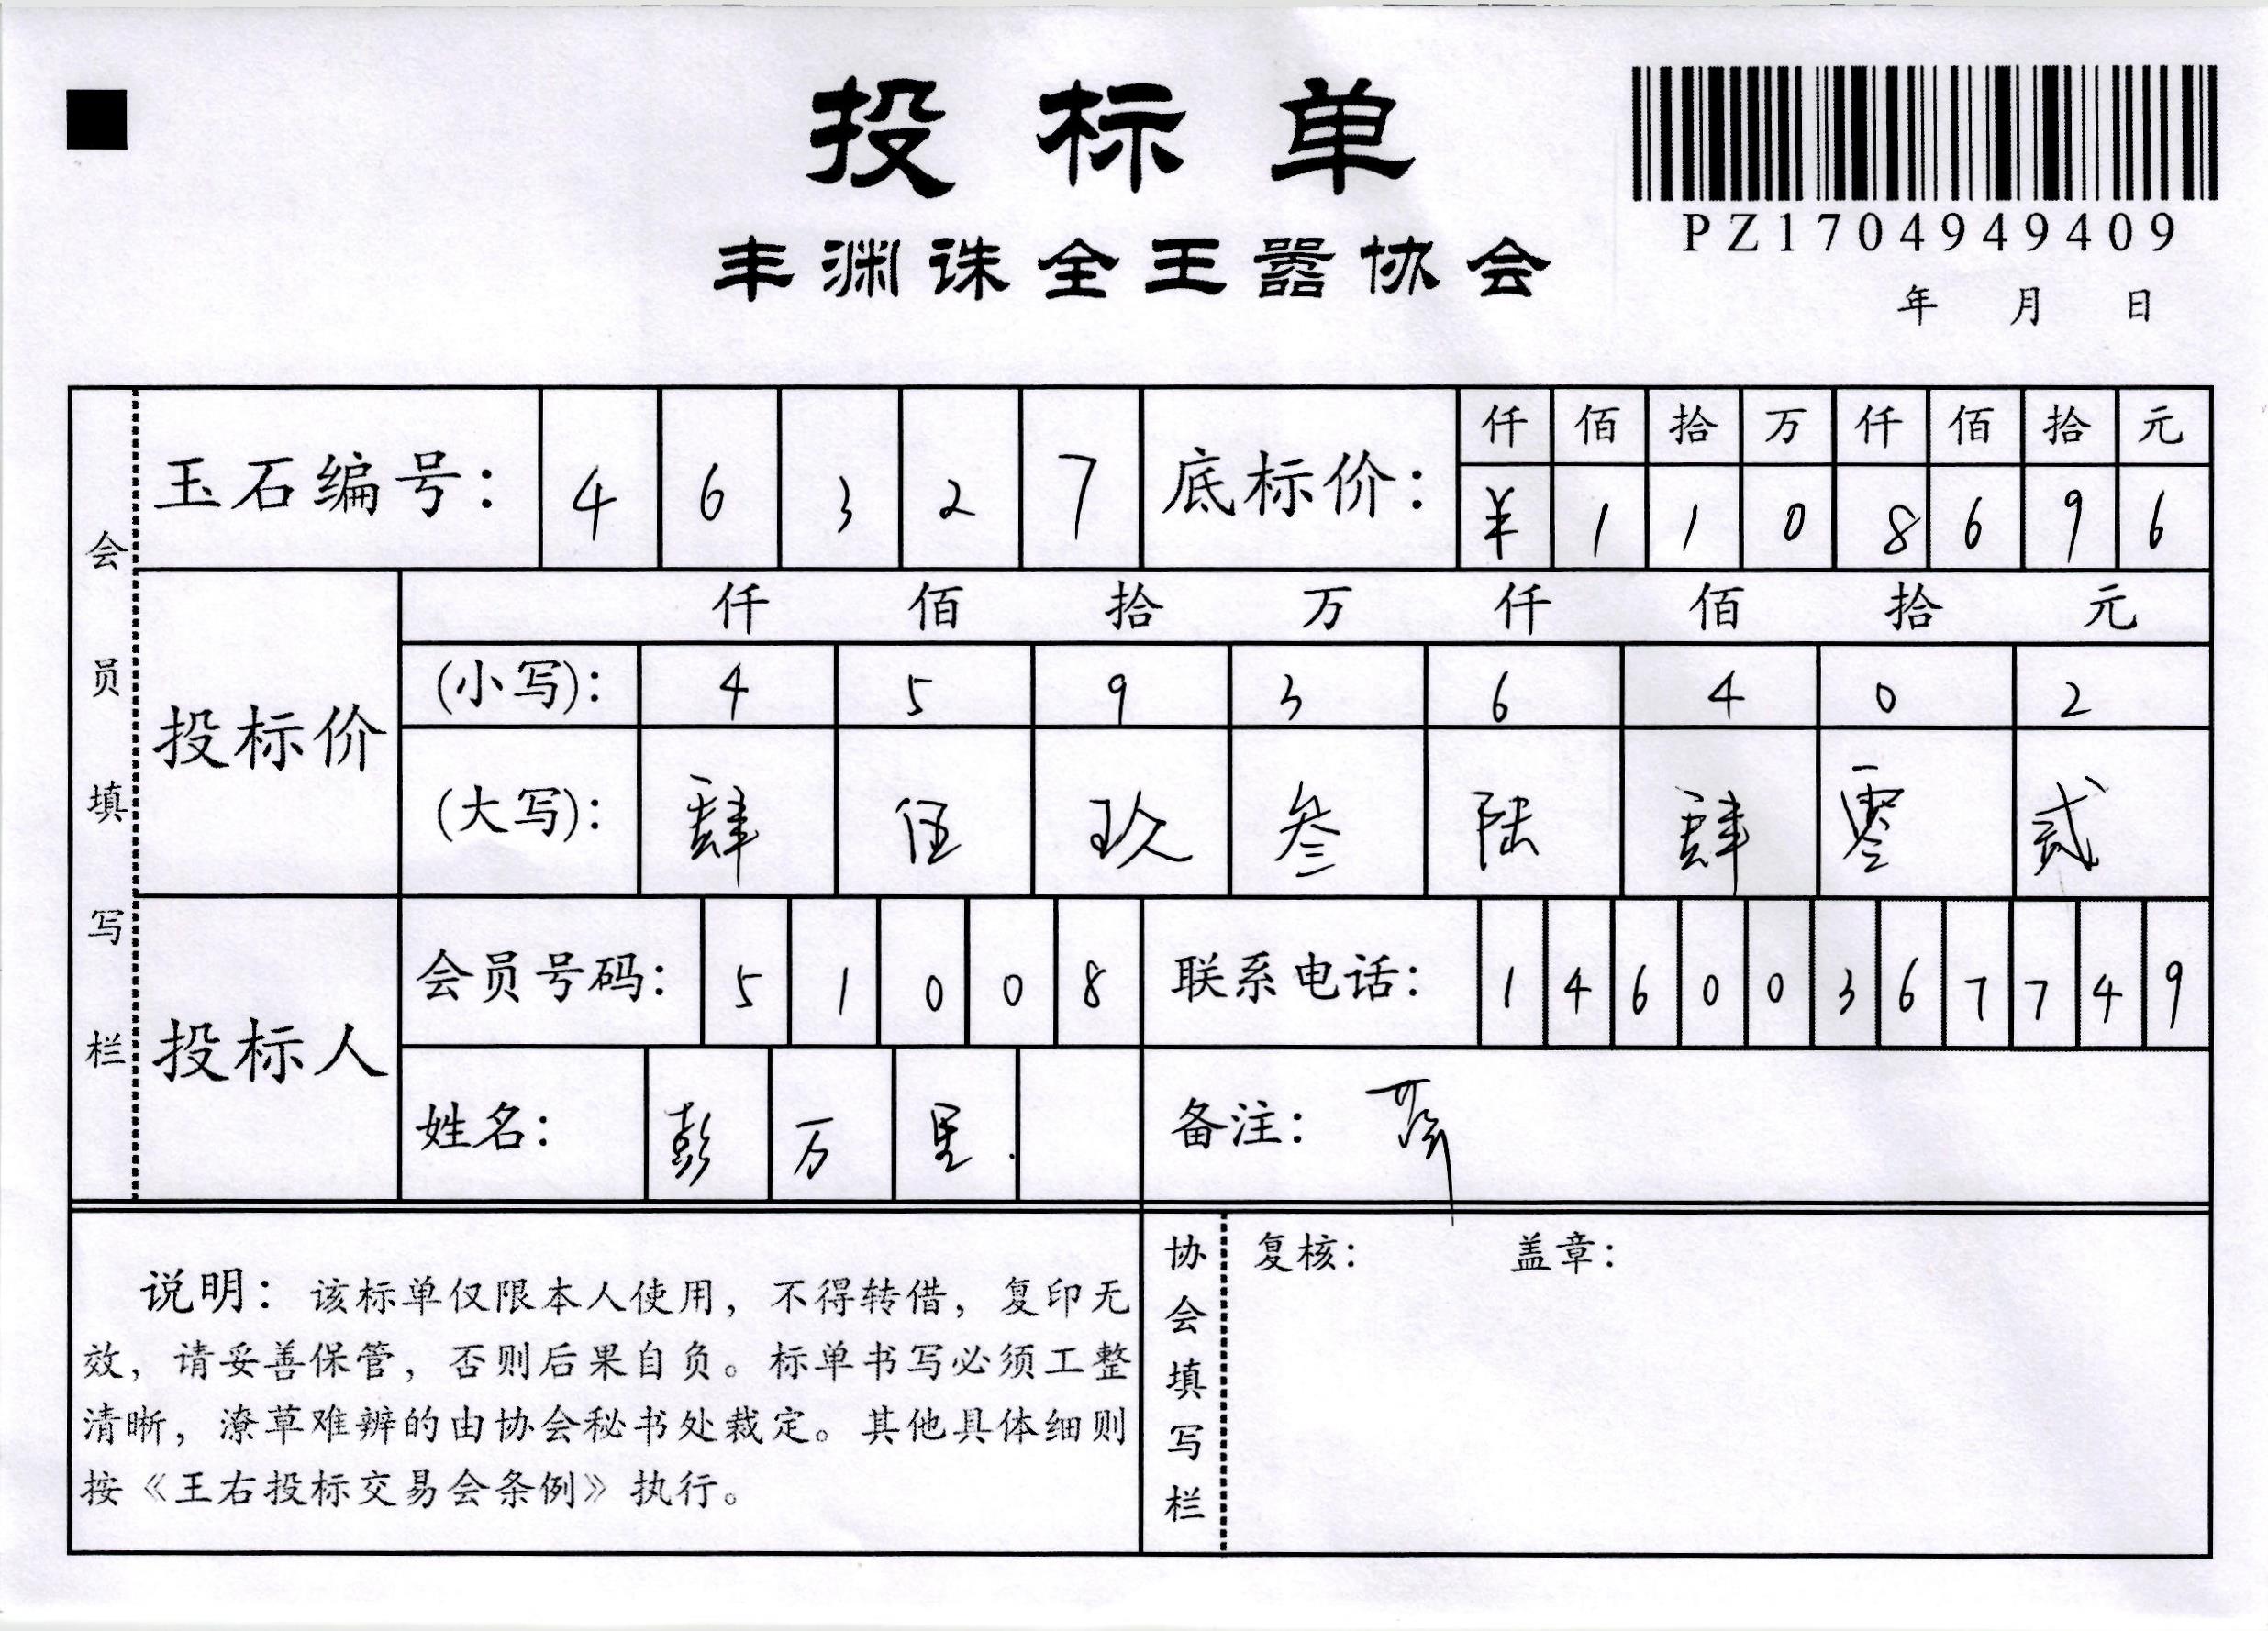 投标单
丰渊诛全王嚣协会
PZ1704949409
年 月 日
会员填写栏
玉石编号: 4 6 3 2 7
底标价: 仟 佰 拾 万 仟 佰 拾 元
¥ 1 1 0 8 6 9 6
投标价
仟 佰 拾 万 仟 佰 拾 元
(小写): 4 5 9 3 6 4 0 2
(大写): 肆 伍 玖 叁 陆 肆 零 贰
投标人
会员号码: 5 1 0 0 8
联系电话: 1 4 6 0 0 3 6 7 7 4 9
姓名: 彭 万 里
备注:
说明: 该标单仅限本人使用, 不得转借, 复印无
效, 请妥善保管, 否则后果自负。标单书写必须工整
清晰, 潦草难辨的由协会秘书处裁定。其他具体细则
按《王右投标交易会条例》执行。
协会填写栏
复核: 盖章: